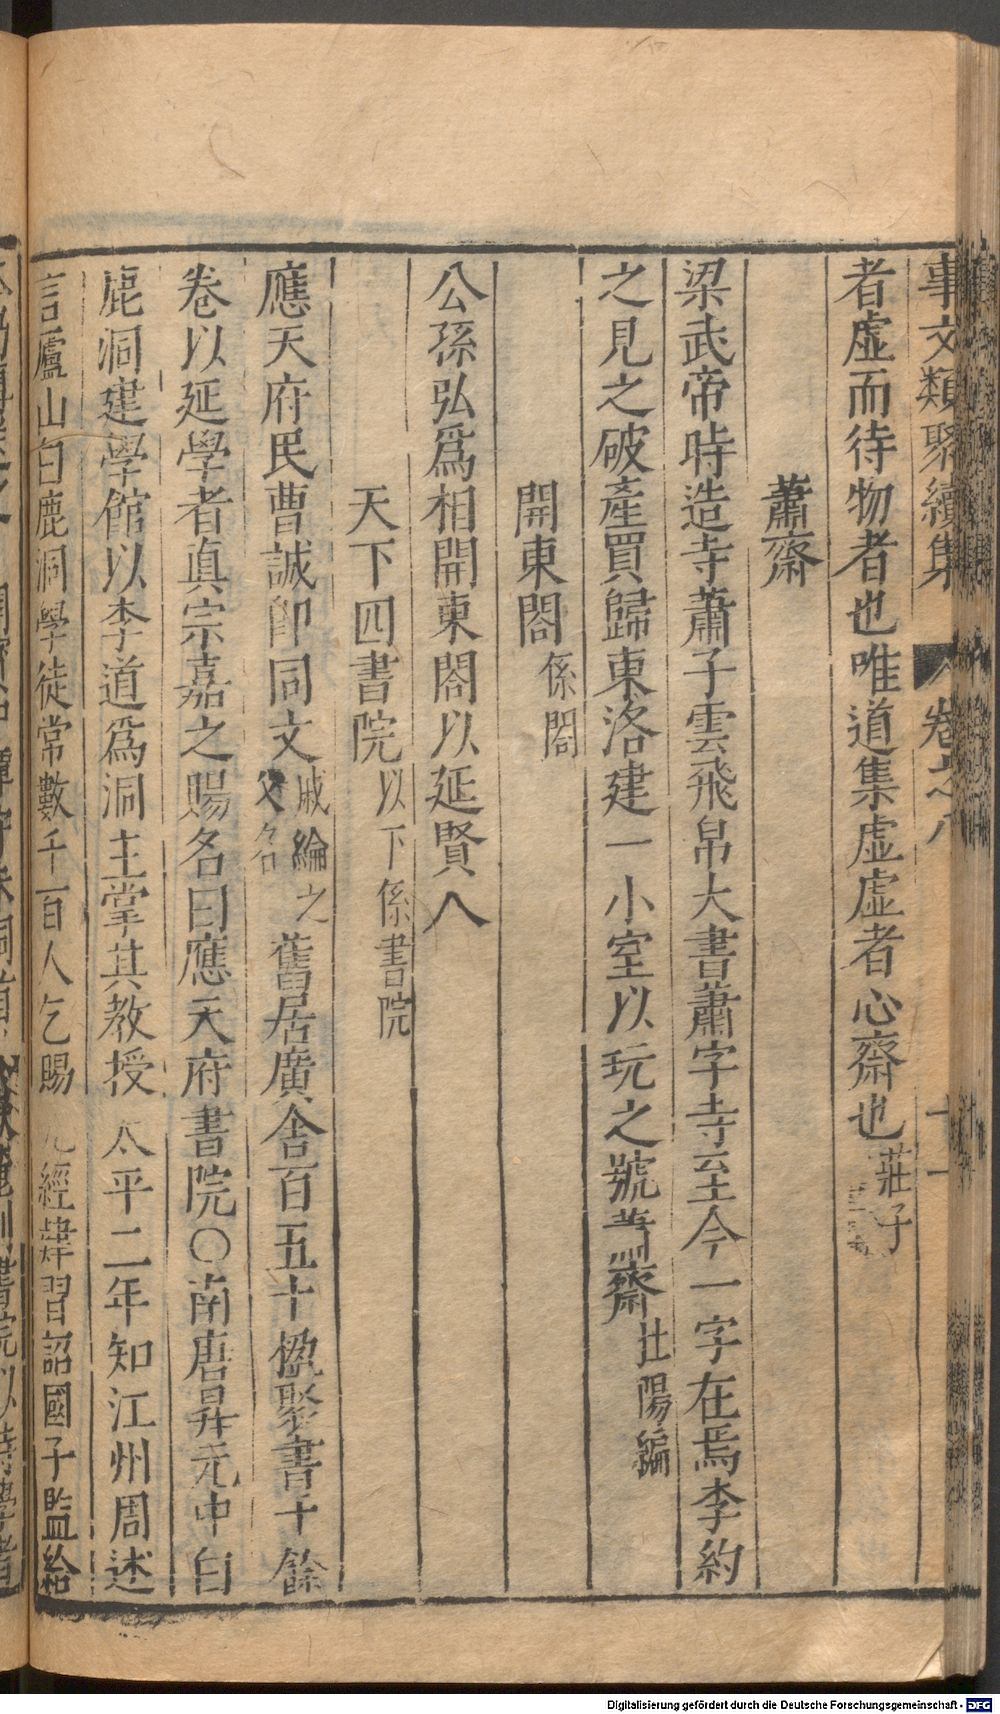 事文類聚續集 卷之八 十一
者虛而待物者也唯道集虛虛者心齋也莊子
蕭齋
梁武帝時造寺蕭子雲飛帛大書蕭字寺至今一字在焉李約
之見之破產買歸東洛建一小室以玩之號蕭齋社陽編
開東閤係閤
公孫弘為相開東閤以延賢人
天下四書院以下係書院
應天府民曹誠卽同文戚綸之父名舊居廣舍百五十楹聚書千餘
卷以延學者真宗嘉之賜名曰應天府書院〇南唐昇元中白
鹿洞建學館以李道為洞主掌其教授太平二年知江州周述
言廬山白鹿洞學徒常數千百人乞賜九經肄習詔國子監給
Digitalisierung gefördert durch die Deutsche Forschungsgemeinschaft - DFG